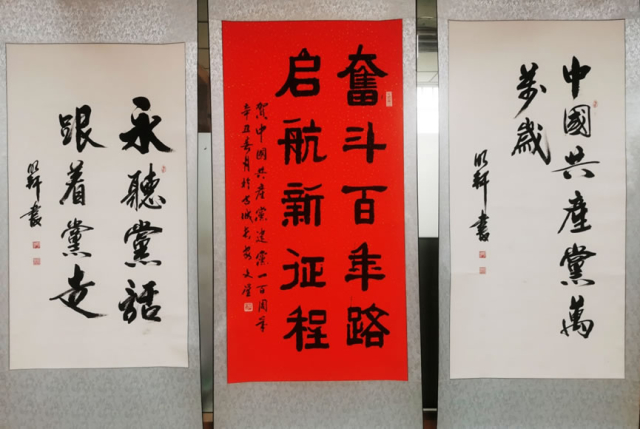 中國共產黨萬
萬歲
明軒書
奮斗百年路
启航新征程
贺中国共產黨建黨一百周年
辛丑春月於古城長安文
永聽黨話
跟着黨走
明軒書